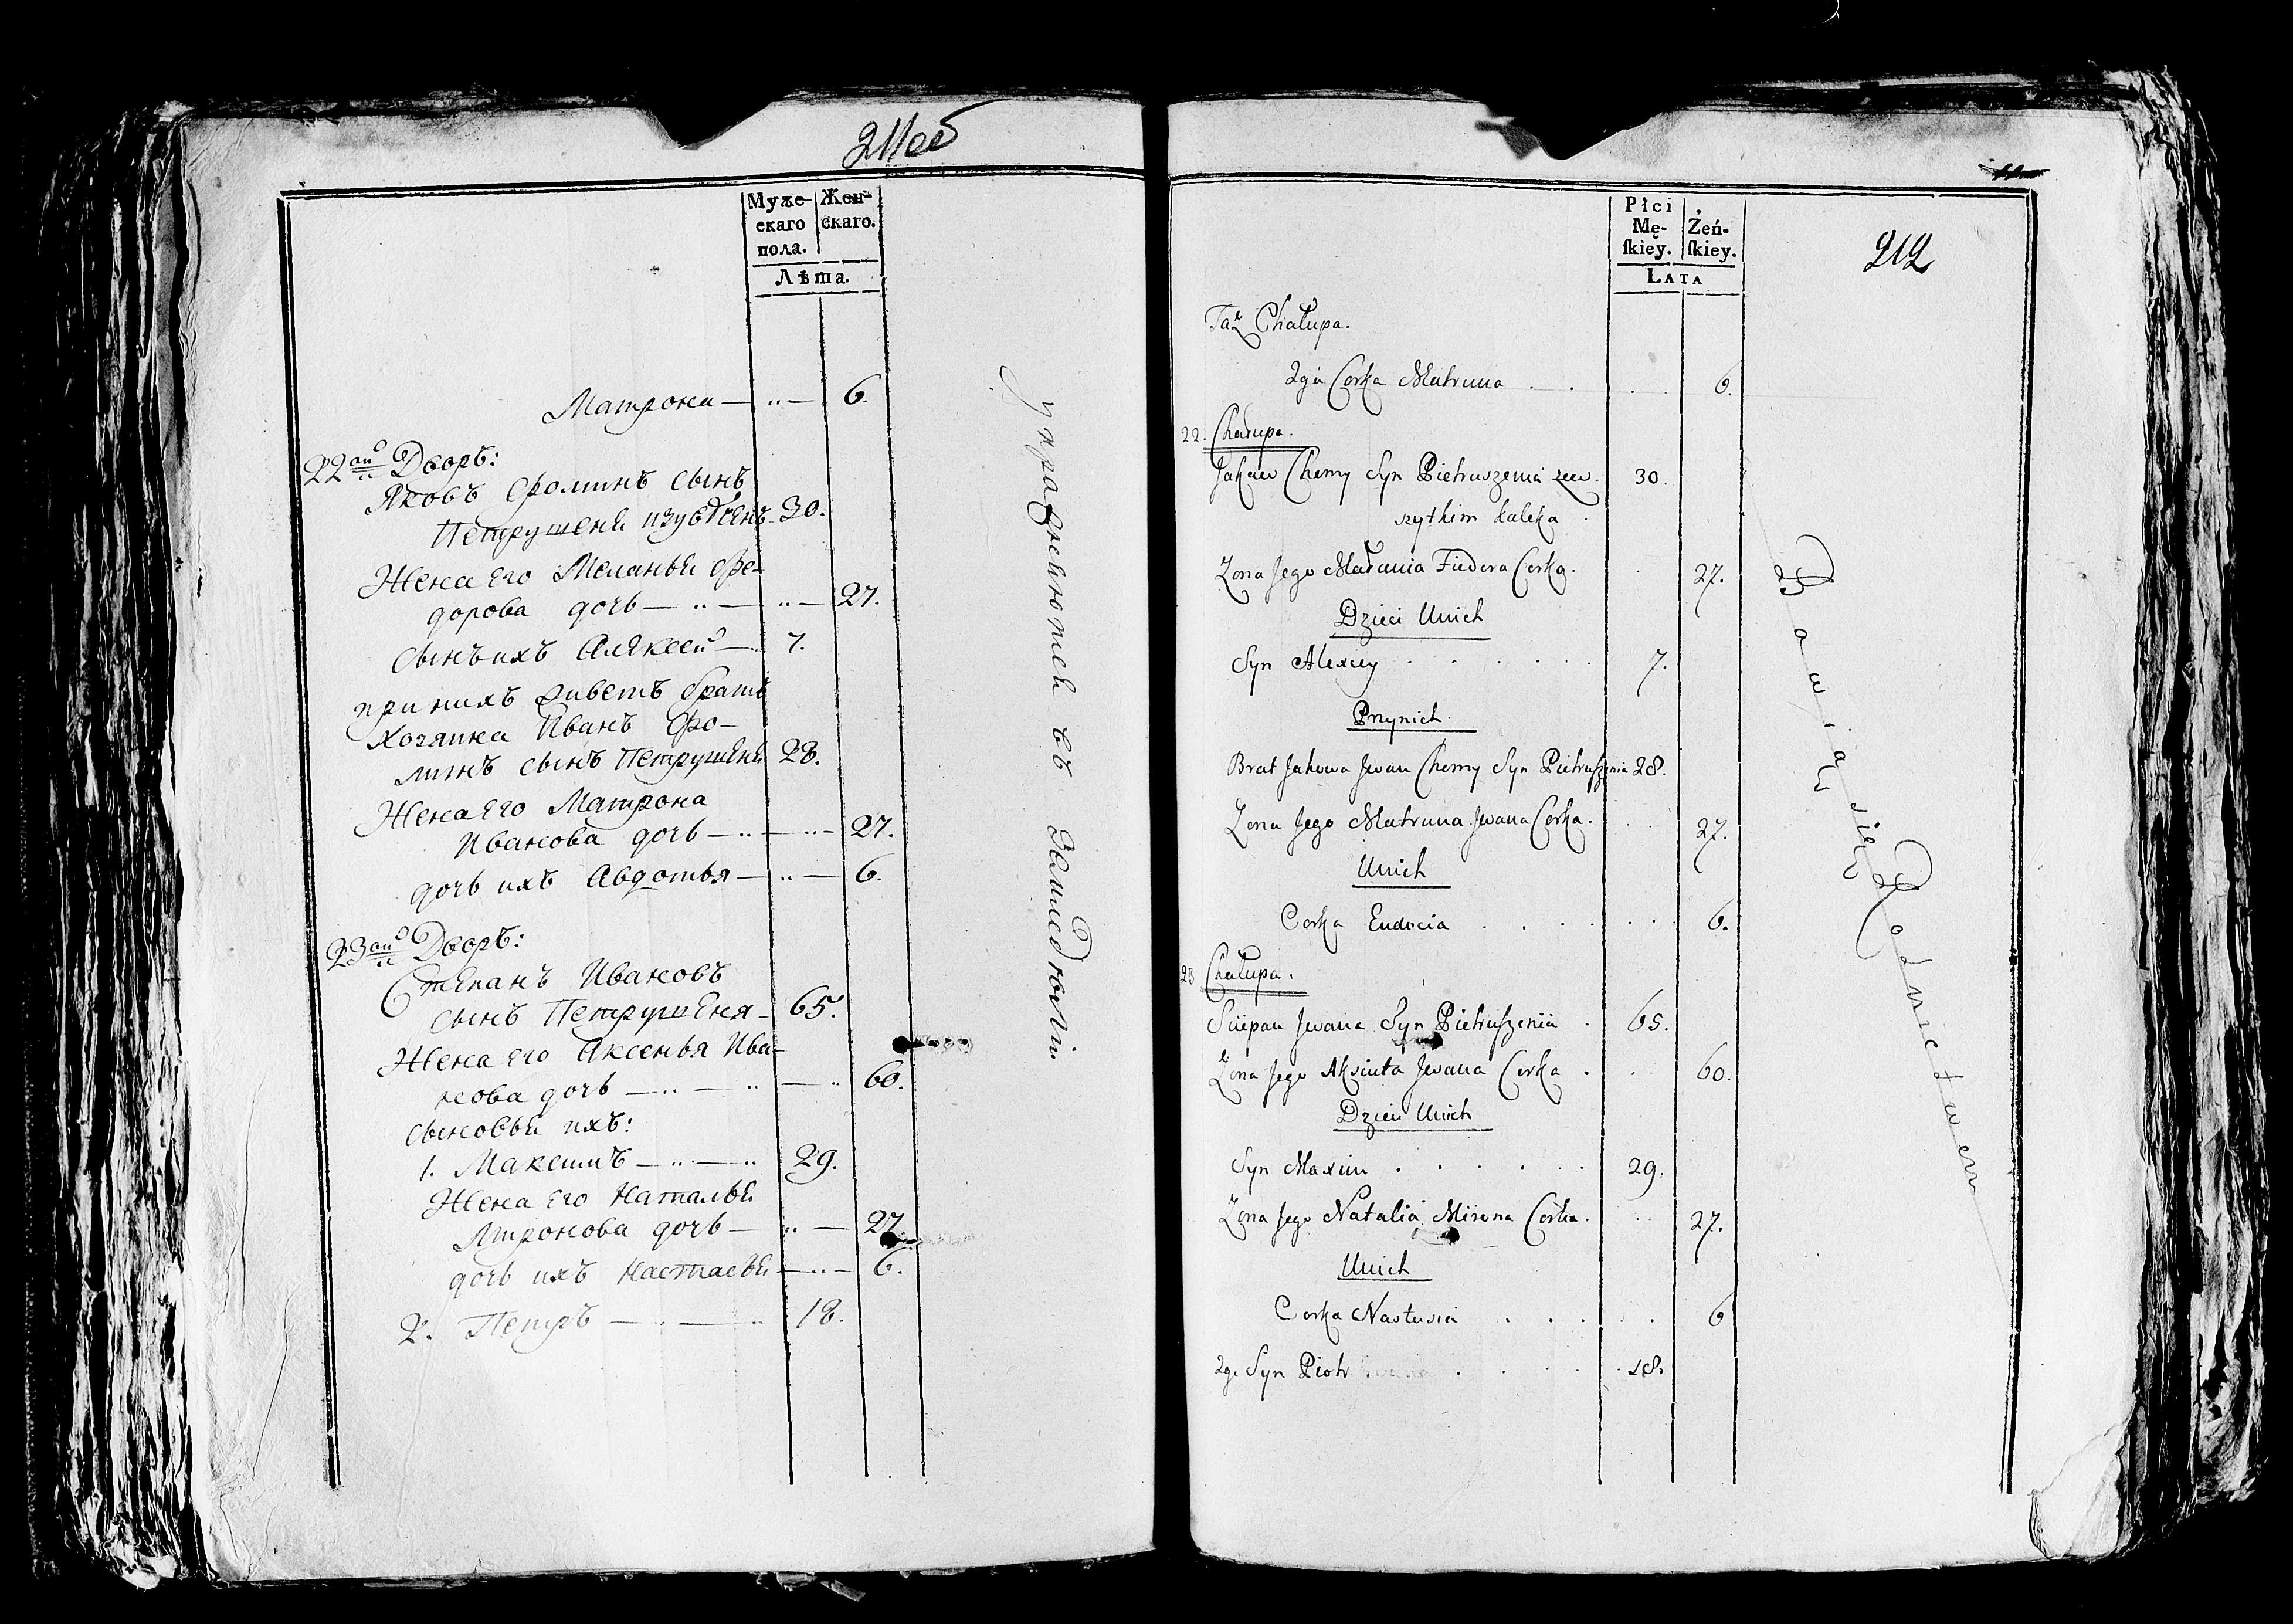 211об
Муже- Жен-
скаго скаго.
пола.
Лѣта.
Матрона — „ — 6.
22ой Дворъ:
Яковъ Фроминъ сынъ
Петрушеня изувѣченъ 30.
Жена его Меланья Фе-
дорова дочь — „ — „ — 27.
сынъ ихъ Алексей — 7.
при нихъ живетъ братъ
хозяина Иванъ Фро-
минъ сынъ Петрушеня 28.
Жена его Матрона
Иванова дочь — „ — „ — 27.
дочь ихъ Авдотья — „ — 6.
23ой Дворъ:
Степанъ Ивановъ
сынъ Петрушеня — 65.
Жена его Аксенья Ива-
нова дочь — „ — „ — „ 60.
сыновья ихъ:
1. Максимъ — „ — „ 29.
Жена его Наталья
Миронова дочь — „ — 27.
дочь ихъ Настасья — „ — 6.
2. Петръ — „ — „ 18.
упражняются въ Земледелiи
212
Płci
Mę- Żeń-
ſkiey. ſkiey.
LATA
Taż Chałupa.
2ga Corka Matruna 6.
22. Chałupa.
Jakow Chomy Syn Pietruszenia
kaleka 30.
Zona Jego Małania Fiedora Corka. 27.
Dzieci Unich
Syn Alexiey 7.
Przynich
Brat Jakowa Jwan Chomy Syn Pietruſzenia 28.
Zona Jego Matruna Jwana Corka. 27.
Unich
Corka Eudocia 6.
23 Chałupa.
Sciepan Jwana Syn Pietruſzenia 65.
Żona Jego Aksinta Jwana Corka 60.
Dzieci Unich
Syn Maxim 29.
Zona Jego Natalia Mirona Corka. 27.
Unich
Corka Nastusia 6
2gi Syn Piotr 18.
Bawią się Rolnictwem